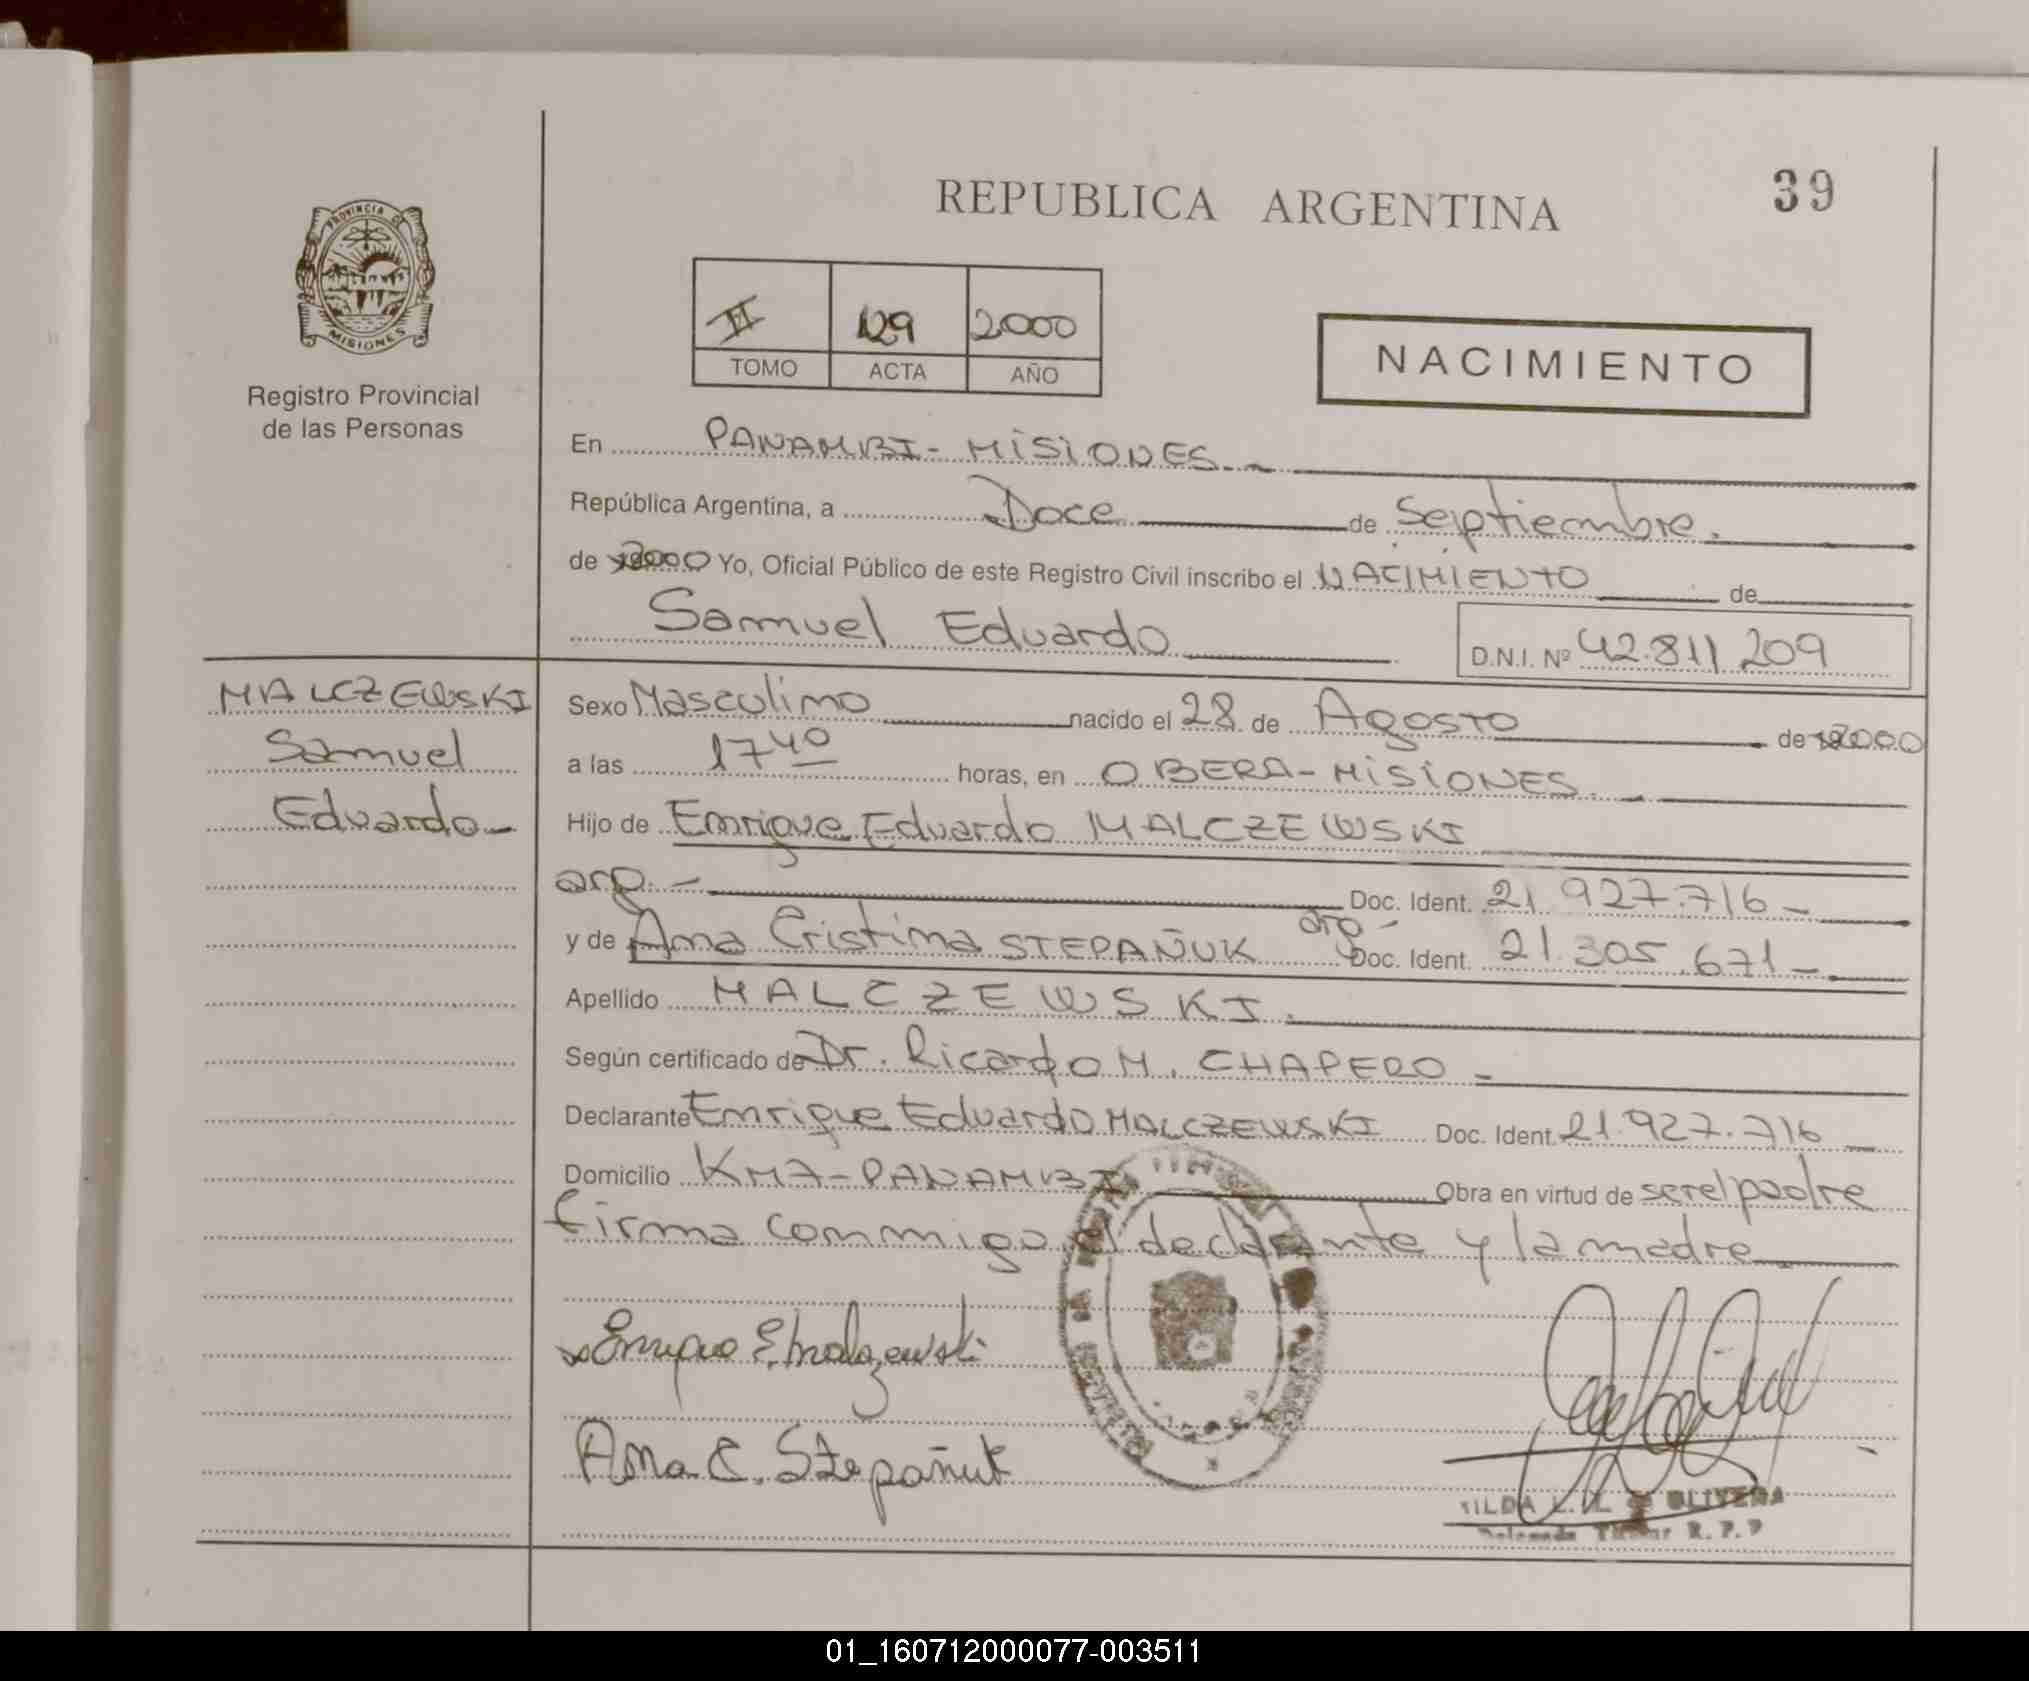 39
REPUBLICA ARGENTINA
PROVINCIA DE
MISIONES
Registro Provincial
de las Personas
II 129 2000
TOMO ACTA AÑO
NACIMIENTO
En PANAMBI - MISIONES.-
República Argentina, a Doce de Septiembre.
de 2000 Yo, Oficial Público de este Registro Civil inscribo el NACIMIENTO de
Samuel Eduardo D.N.I. Nº 42.811 209
MALCZEWSKI
Samuel
Eduardo-
Sexo Masculino nacido el 28 de Agosto de 2000
a las 17 40 horas, en OBERA - MISIONES.-
Hijo de Enrique Eduardo MALCZEWSKI
arg.- Doc. Ident. 21 927.716-
y de Ana Cristina STEPAÑUK arg- Doc. Ident. 21.305.671-
Apellido MALCZEWSKI.
Según certificado de Dr. Ricardo M. CHAPERO-
Declarante Enrique Eduardo MALCZEWSKI Doc. Ident. 21.927.716-
Domicilio KM7-PANAMBI Obra en virtud de ser el padre
firma conmigo el declarante y la madre
Enrique E. Malczewski
Ana C. Stepañuk
OLIVERA
R. P. P
01_160712000077-003511